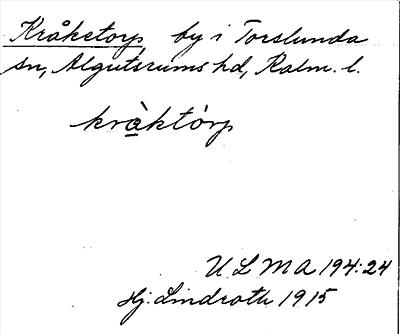 Kråketorp by i Torslunda
sn, Algutsrums hd, Kalm. l.
kràktórp
U L M A 194:24
Hj. Lindroth 1915